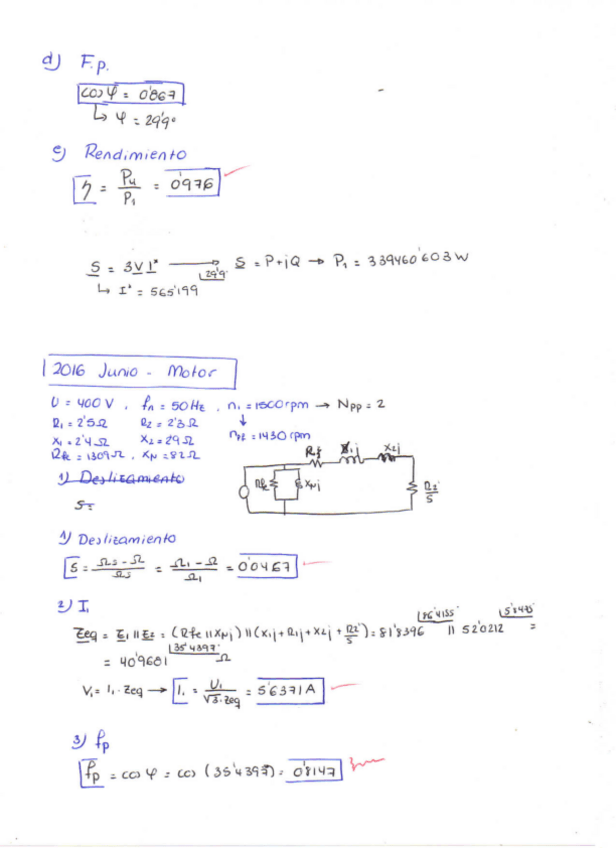 d) F.p.
cos φ = 0'867
↳ φ = 29'9º
e) Rendimiento
η = Pu/P1 = 0'976
S = 3 V I* → S = P+jQ → P1 = 339460'603 W
29'9º
↳ I* = 565'199
2016 Junio - Motor
U = 400 V , f1 = 50 Hz , n1 = 1500 rpm → Npp = 2
R1 = 2'5 Ω R2 = 2'3 Ω ↓
X1 = 2'4 Ω X2 = 29 Ω n2 = 1430 rpm
Rfe = 1309 Ω , XM = 82 Ω
1) Deslizamiento
S=
Rfe XMj X2j R2/S
1) Deslizamiento
S = Ωs - Ω / Ωs = Ω1 - Ω / Ω1 = 0'0467
2) I1
Zeq = Z1 || Z2 = (Rfe || XMj) || (X1j + R1j + X2j + R2/S) = 81'8396 |86'4155 || 52'0212 =
= 40'9601 |35'4397 Ω
V1 = I1 · Zeq → I1 = U1/√3·Zeq = 5'6371 A
3) fp
fp = cos φ = cos (35'4397) = 0'8147